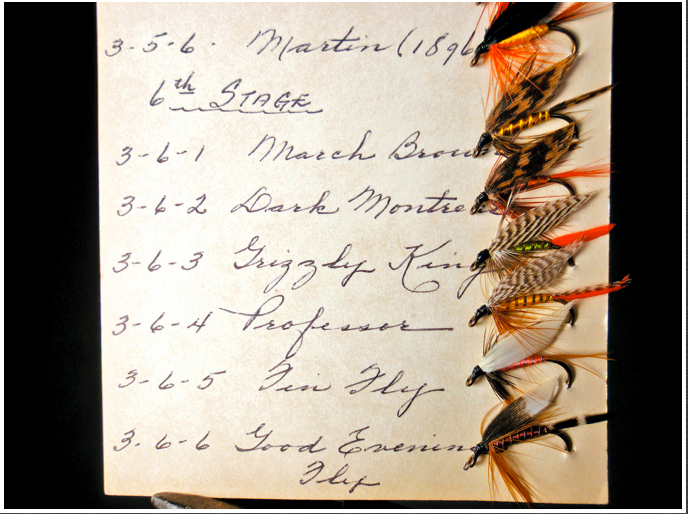 3-5-6. Martin (1896
6th STAGE
3-6-1 March Brown
3-6-2 Dark Montreal
3-6-3 Grizzly King
3-6-4 Professor
3-6-5 Fin Fly
3-6-6 Good Evening
Fly